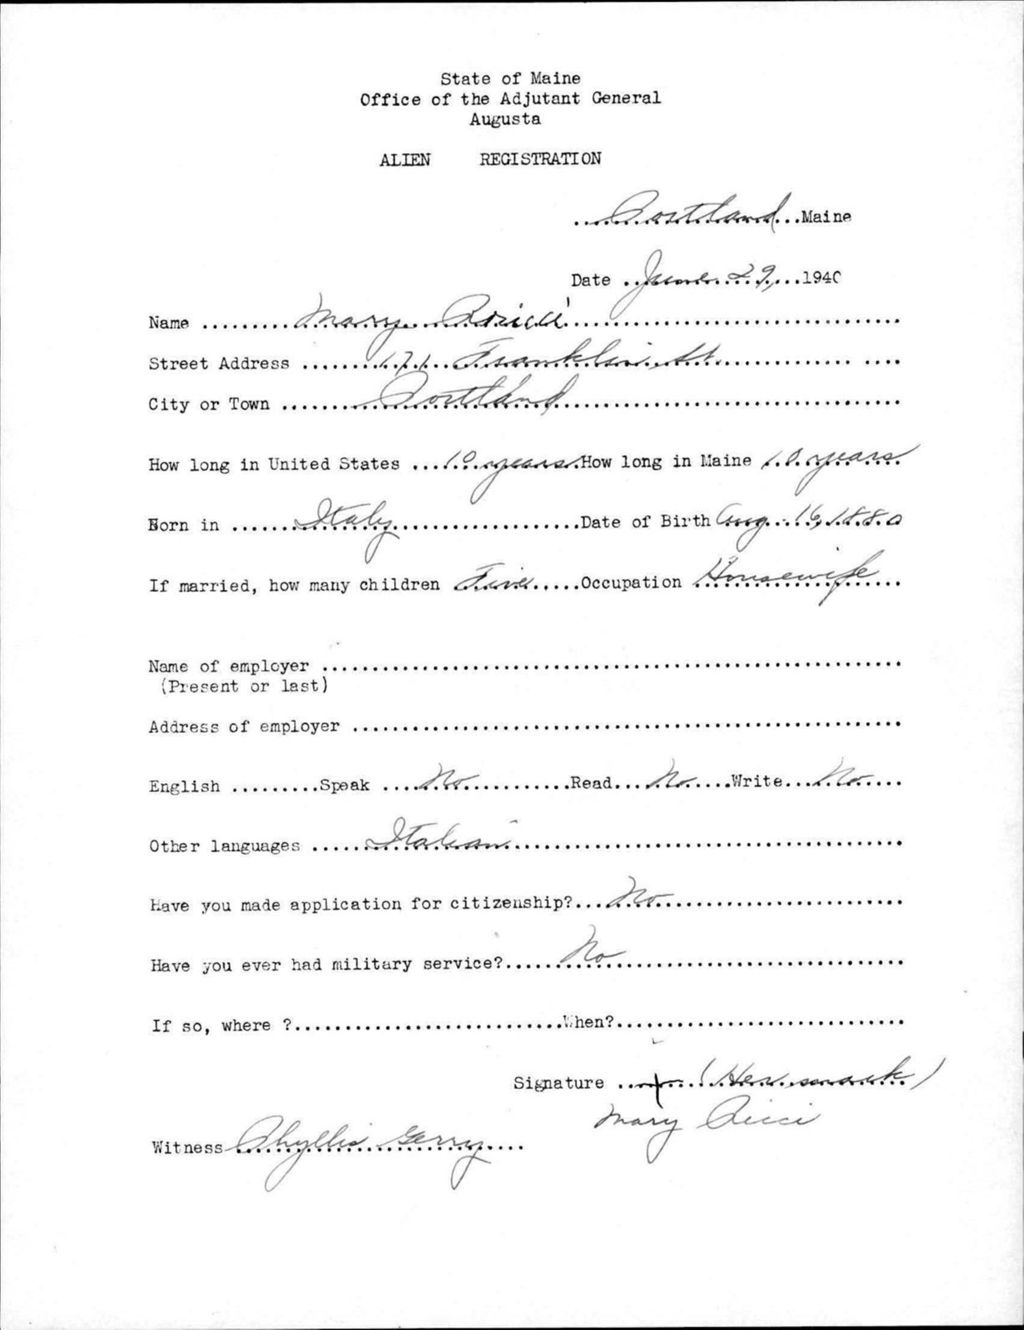 State of Maine
Office of the Adjutant General
Augusta
ALIEN REGISTRATION
Portland Maine
Date June 29, 1940
Name Mary Ricci
Street Address 171 Franklin St.
City or Town Portland
How long in United States 10 years How long in Maine 10 years
Born in Italy Date of Birth Aug. 16, 1880
If married, how many children Five Occupation Housewife
Name of employer
(Present or last)
Address of employer
English Speak No Read No Write No
Other languages Italian
Have you made application for citizenship? No
Have you ever had military service? No
If so, where ? When?
Signature + (Her mark)
Mary Ricci
Witness Phyllis Gerry